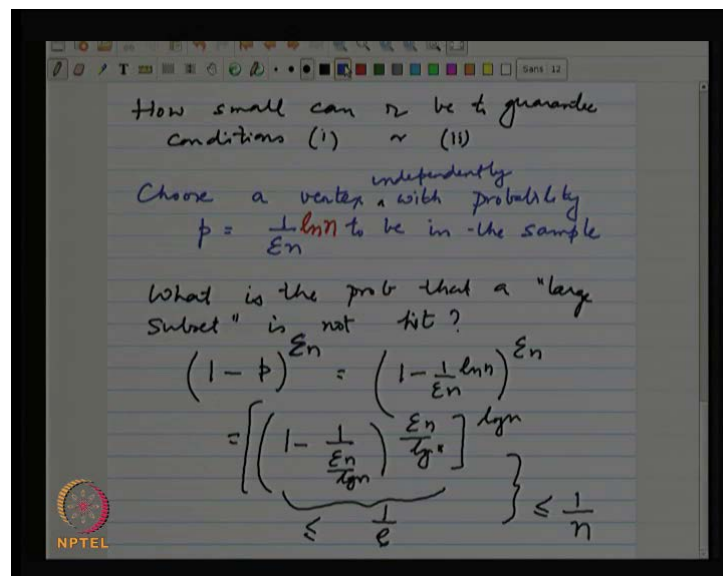 T
Sans 12
How small can r be to guarantee
conditions (i) ~ (ii)
independently
Choose a vertex ^ with probability
p = 1/(εn) ln n to be in the sample
What is the prob that a "large
Subset" is not hit?
(1 - p)^(εn) = (1 - 1/(εn) ln n)^(εn)
= [(1 - 1/(εn/lgn))^(εn/lgn)]^(lgn) } ≤ 1/n
≤ 1/e
NPTEL